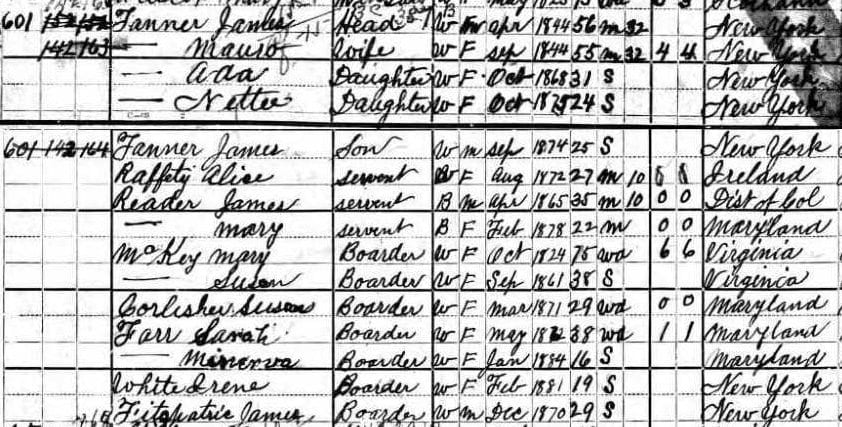 601 Fanner James Head W m apr 1844 56 m 32 New York
142 163 — Wife W F sep 1844 55 m 32 4 4 New York
— Ada Daughter W F Oct 1868 31 S New York
— Nettee Daughter W F Oct 1875 24 S New York
601 142 164 Fanner James Son W m sep 1874 25 S New York
Raffety Alice servent F Aug 1872 27 m 10 Ireland
Reader James servent B m apr 1865 35 m 10 0 0 Dist of Col
— mary servent B F Feb 1878 22 m 0 0 Maryland
McKey mary Boarder W F Oct 1824 75 wd 6 6 Virginia
— Susen Boarder W F Sep 1861 38 S Virginia
Corlisher Susan Boarder W F Mar 1871 29 wd 0 0 Maryland
Farr Sarah Boarder W F may 38 wd 1 1 Maryland
— Minerva Boarder W F Jan 1884 16 S Maryland
White Irene Boarder W F Feb 1881 19 S New York
Fitzpatric James Boarder W m Dec 1870 29 S New York